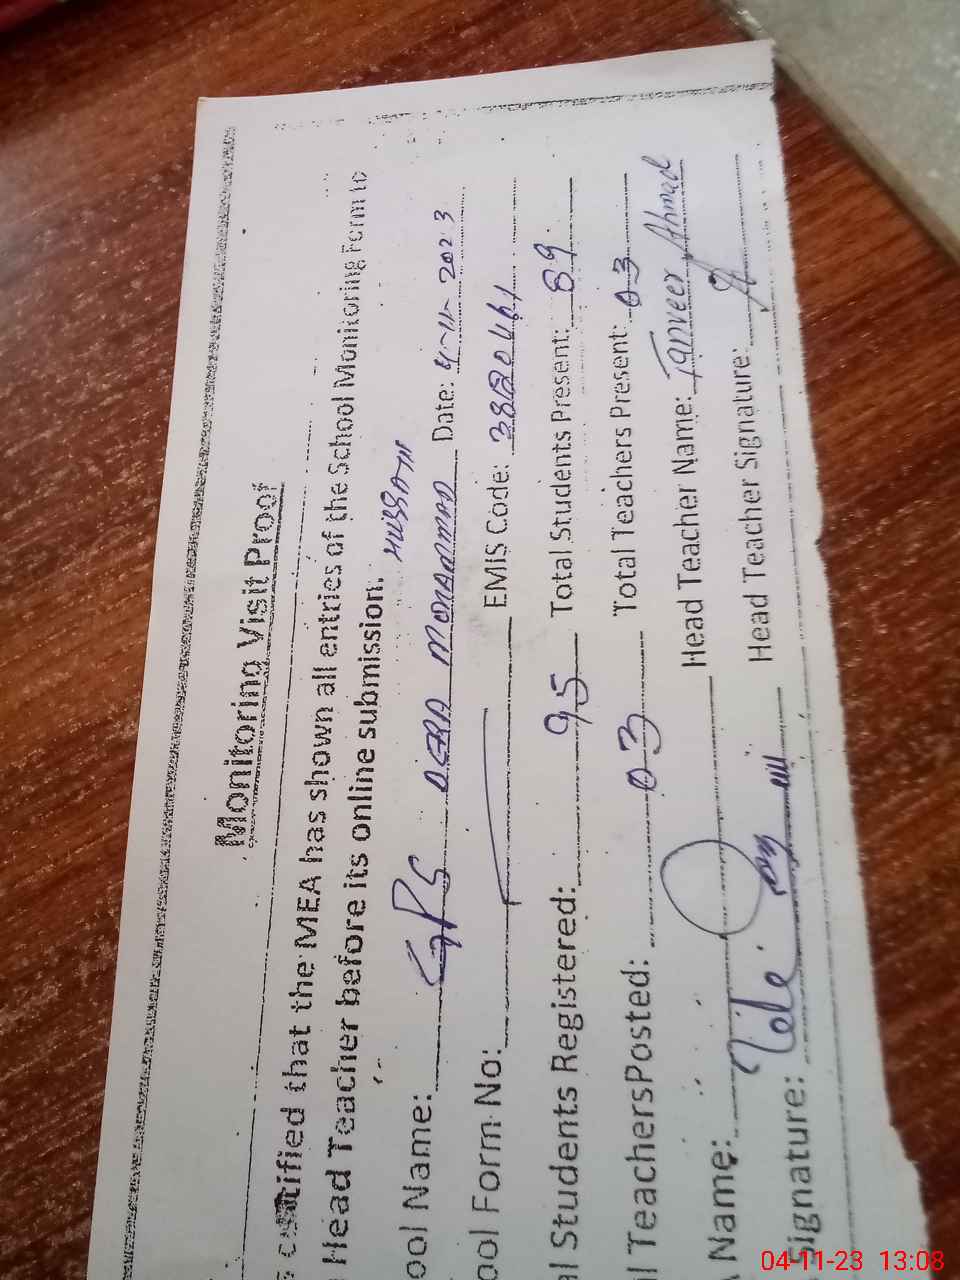 Monitoring Visit Proof
certified that the MEA has shown all entries of the School Monitoring Form to
Head Teacher before its online submission.
ool Name: GPS DERA MOHAMMAD HUSSAIN Date: 4-11-2023
ool Form No: EMIS Code:
al Students Registered: 95 Total Students Present: 89
l Teachers Posted: 03 Total Teachers Present: 03
Name: Head Teacher Name: Tanveer Ahmad
Signature: Head Teacher Signature:
04-11-23 13:08